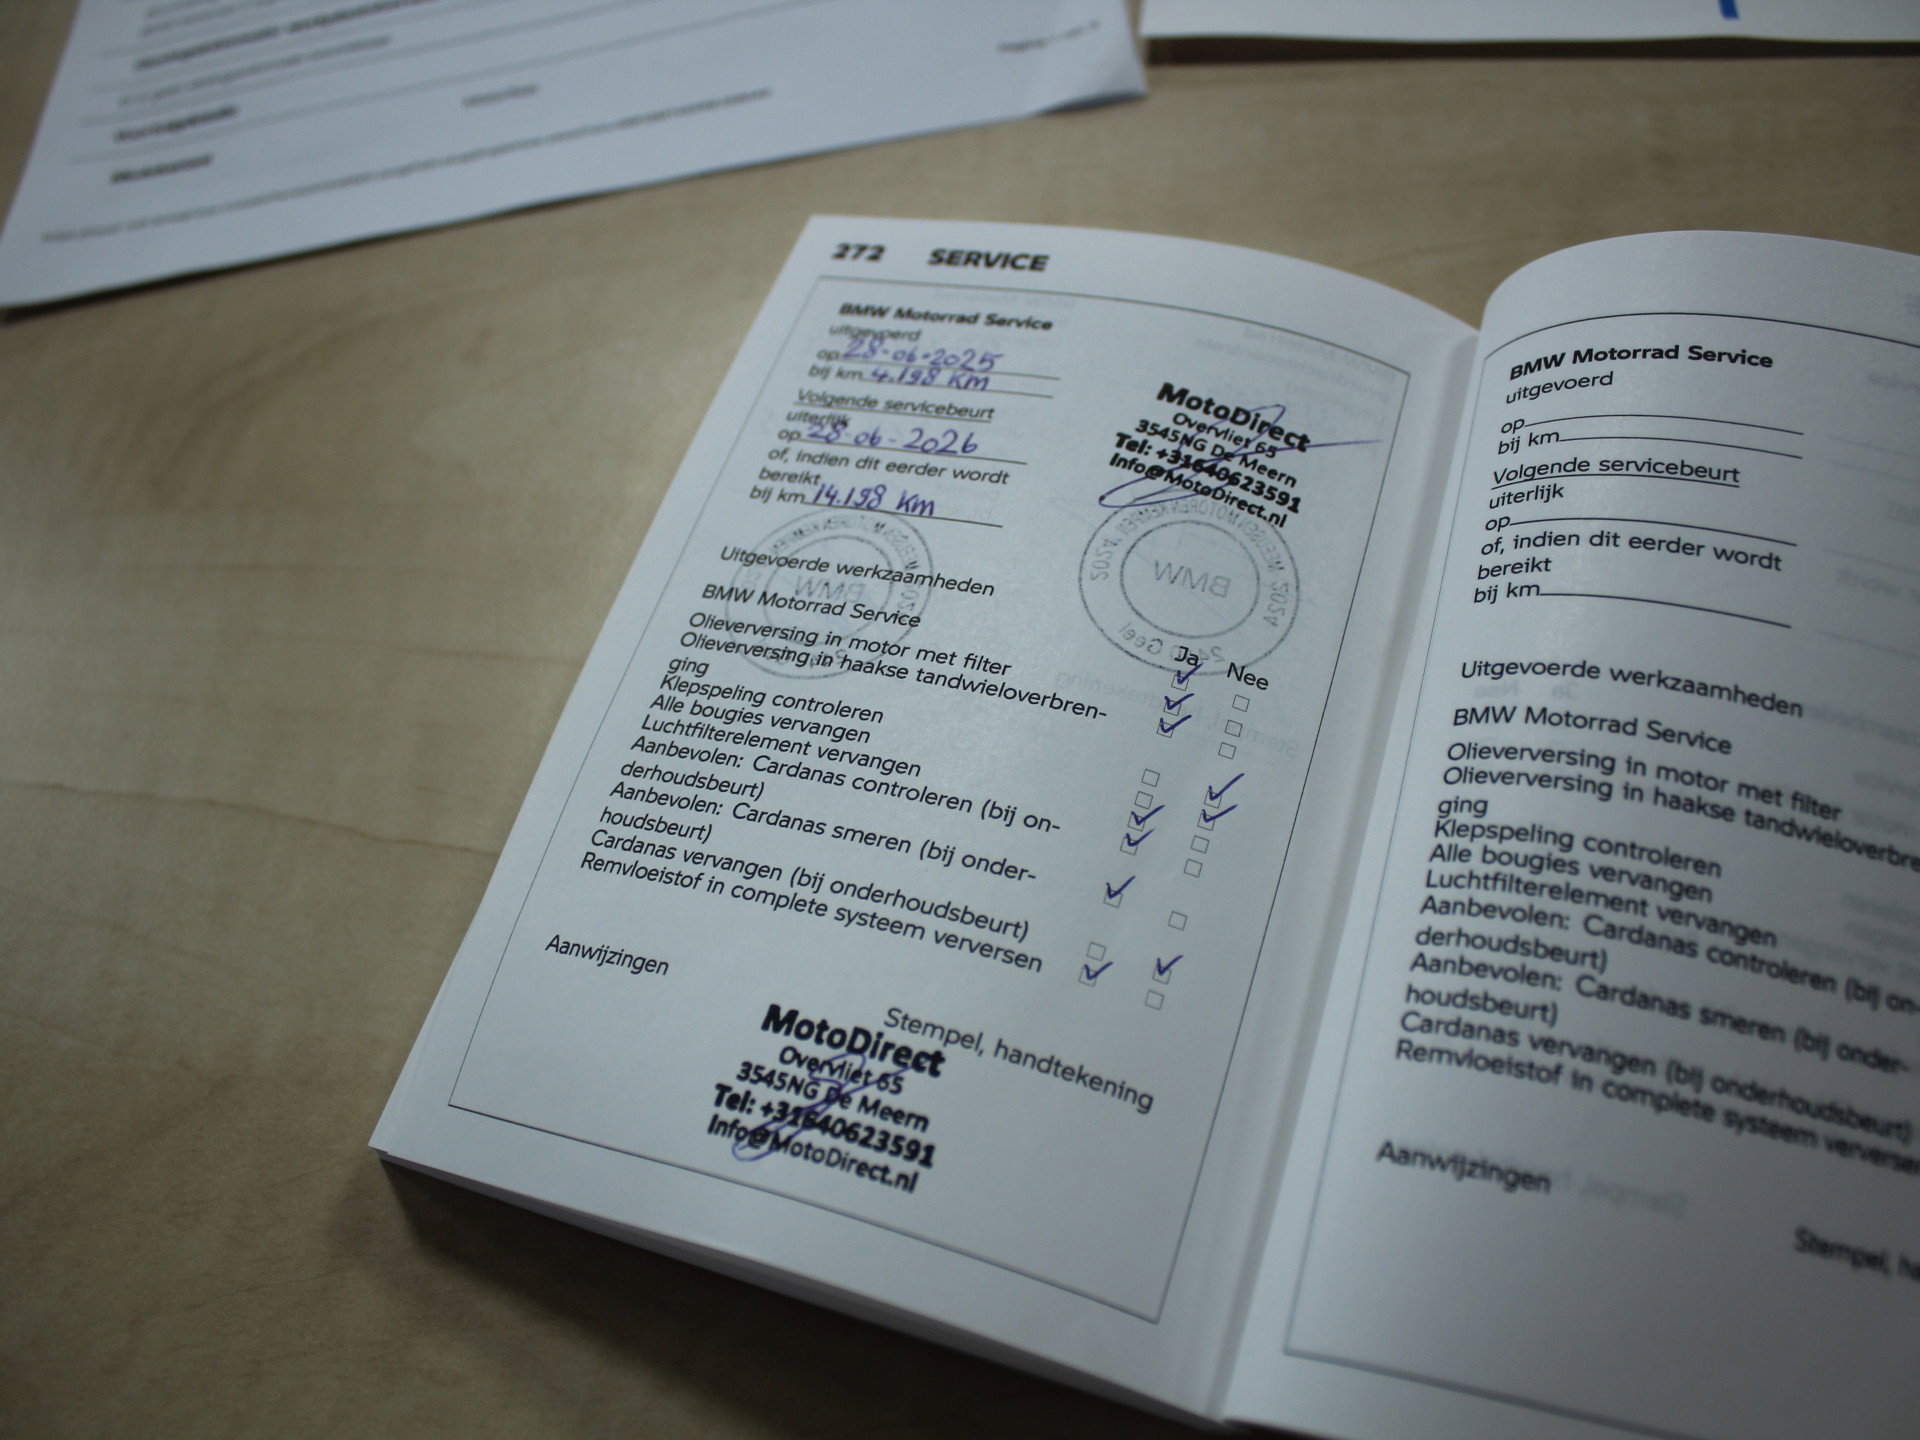 272 SERVICE
BMW Motorrad Service
uitgevoerd
op 28-06-2025
bij km 4.198 km
Volgende servicebeurt
uiterlijk
op 28-06-2026
of, indien dit eerder wordt
bereikt
bij km 14.198 km
MotoDirect
Overvliet 65
3545NG De Meern
Tel: +31640623591
Info@MotoDirect.nl
Uitgevoerde werkzaamheden
BMW Motorrad Service
Ja Nee
Olieverversing in motor met filter
Olieverversing in haakse tandwieloverbren-
ging
Klepspeling controleren
Alle bougies vervangen
Luchtfilterelement vervangen
Aanbevolen: Cardanas controleren (bij on-
derhoudsbeurt)
Aanbevolen: Cardanas smeren (bij onder-
houdsbeurt)
Cardanas vervangen (bij onderhoudsbeurt)
Remvloeistof in complete systeem verversen
Aanwijzingen
Stempel, handtekening
MotoDirect
Overvliet 65
3545NG De Meern
Tel: +31640623591
Info@MotoDirect.nl
BMW Motorrad Service
uitgevoerd
op
bij km
Volgende servicebeurt
uiterlijk
op
of, indien dit eerder wordt
bereikt
bij km
Uitgevoerde werkzaamheden
BMW Motorrad Service
Olieverversing in motor met filter
Olieverversing in haakse tandwieloverbre
ging
Klepspeling controleren
Alle bougies vervangen
Luchtfilterelement vervangen
Aanbevolen: Cardanas controleren (bij on-
derhoudsbeurt)
Aanbevolen: Cardanas smeren (bij onder-
houdsbeurt)
Cardanas vervangen (bij onderhoudsbeurt)
Remvloeistof in complete systeem verversen
Aanwijzingen
Stempel, ha